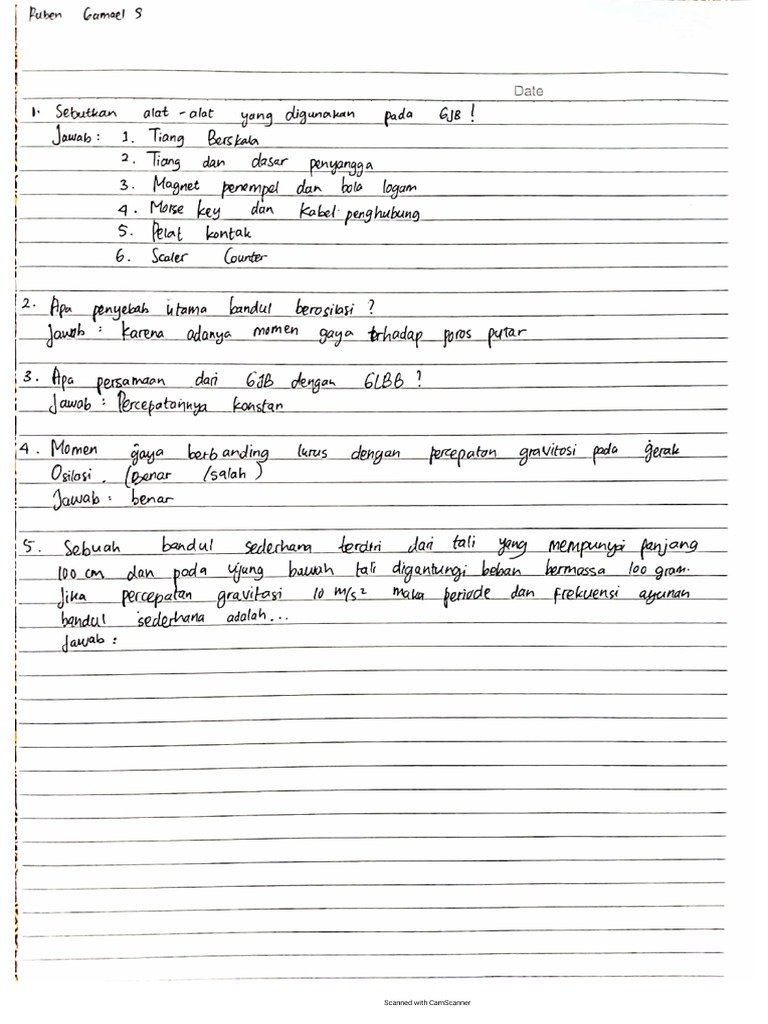 Ruben Gamael S
Date
1. Sebutkan alat-alat yang digunakan pada GJB !
Jawab : 1. Tiang Berskala
2. Tiang dan dasar penyangga
3. Magnet penempel dan bola logam
4. Morse key dan Kabel penghubung
5. Pelat kontak
6. Scaler Counter
2. Apa penyebab utama bandul berosilasi ?
Jawab : karena adanya momen gaya trhadap poros putar
3. Apa persamaan dari GJB dengan GLBB ?
Jawab : Percepatannya konstan
4. Momen gaya berbanding lurus dengan percepatan gravitasi pada gerak
Osilasi. (Benar /salah)
Jawab : benar
5. Sebuah bandul sederhana terdiri dari tali yang mempunyai panjang
100 cm dan pada ujung bawah tali digantungi beban bermassa 100 gram.
Jika percepatan gravitasi 10 m/s² maka periode dan frekuensi ayunan
bandul sederhana adalah...
Jawab :
Scanned with CamScanner